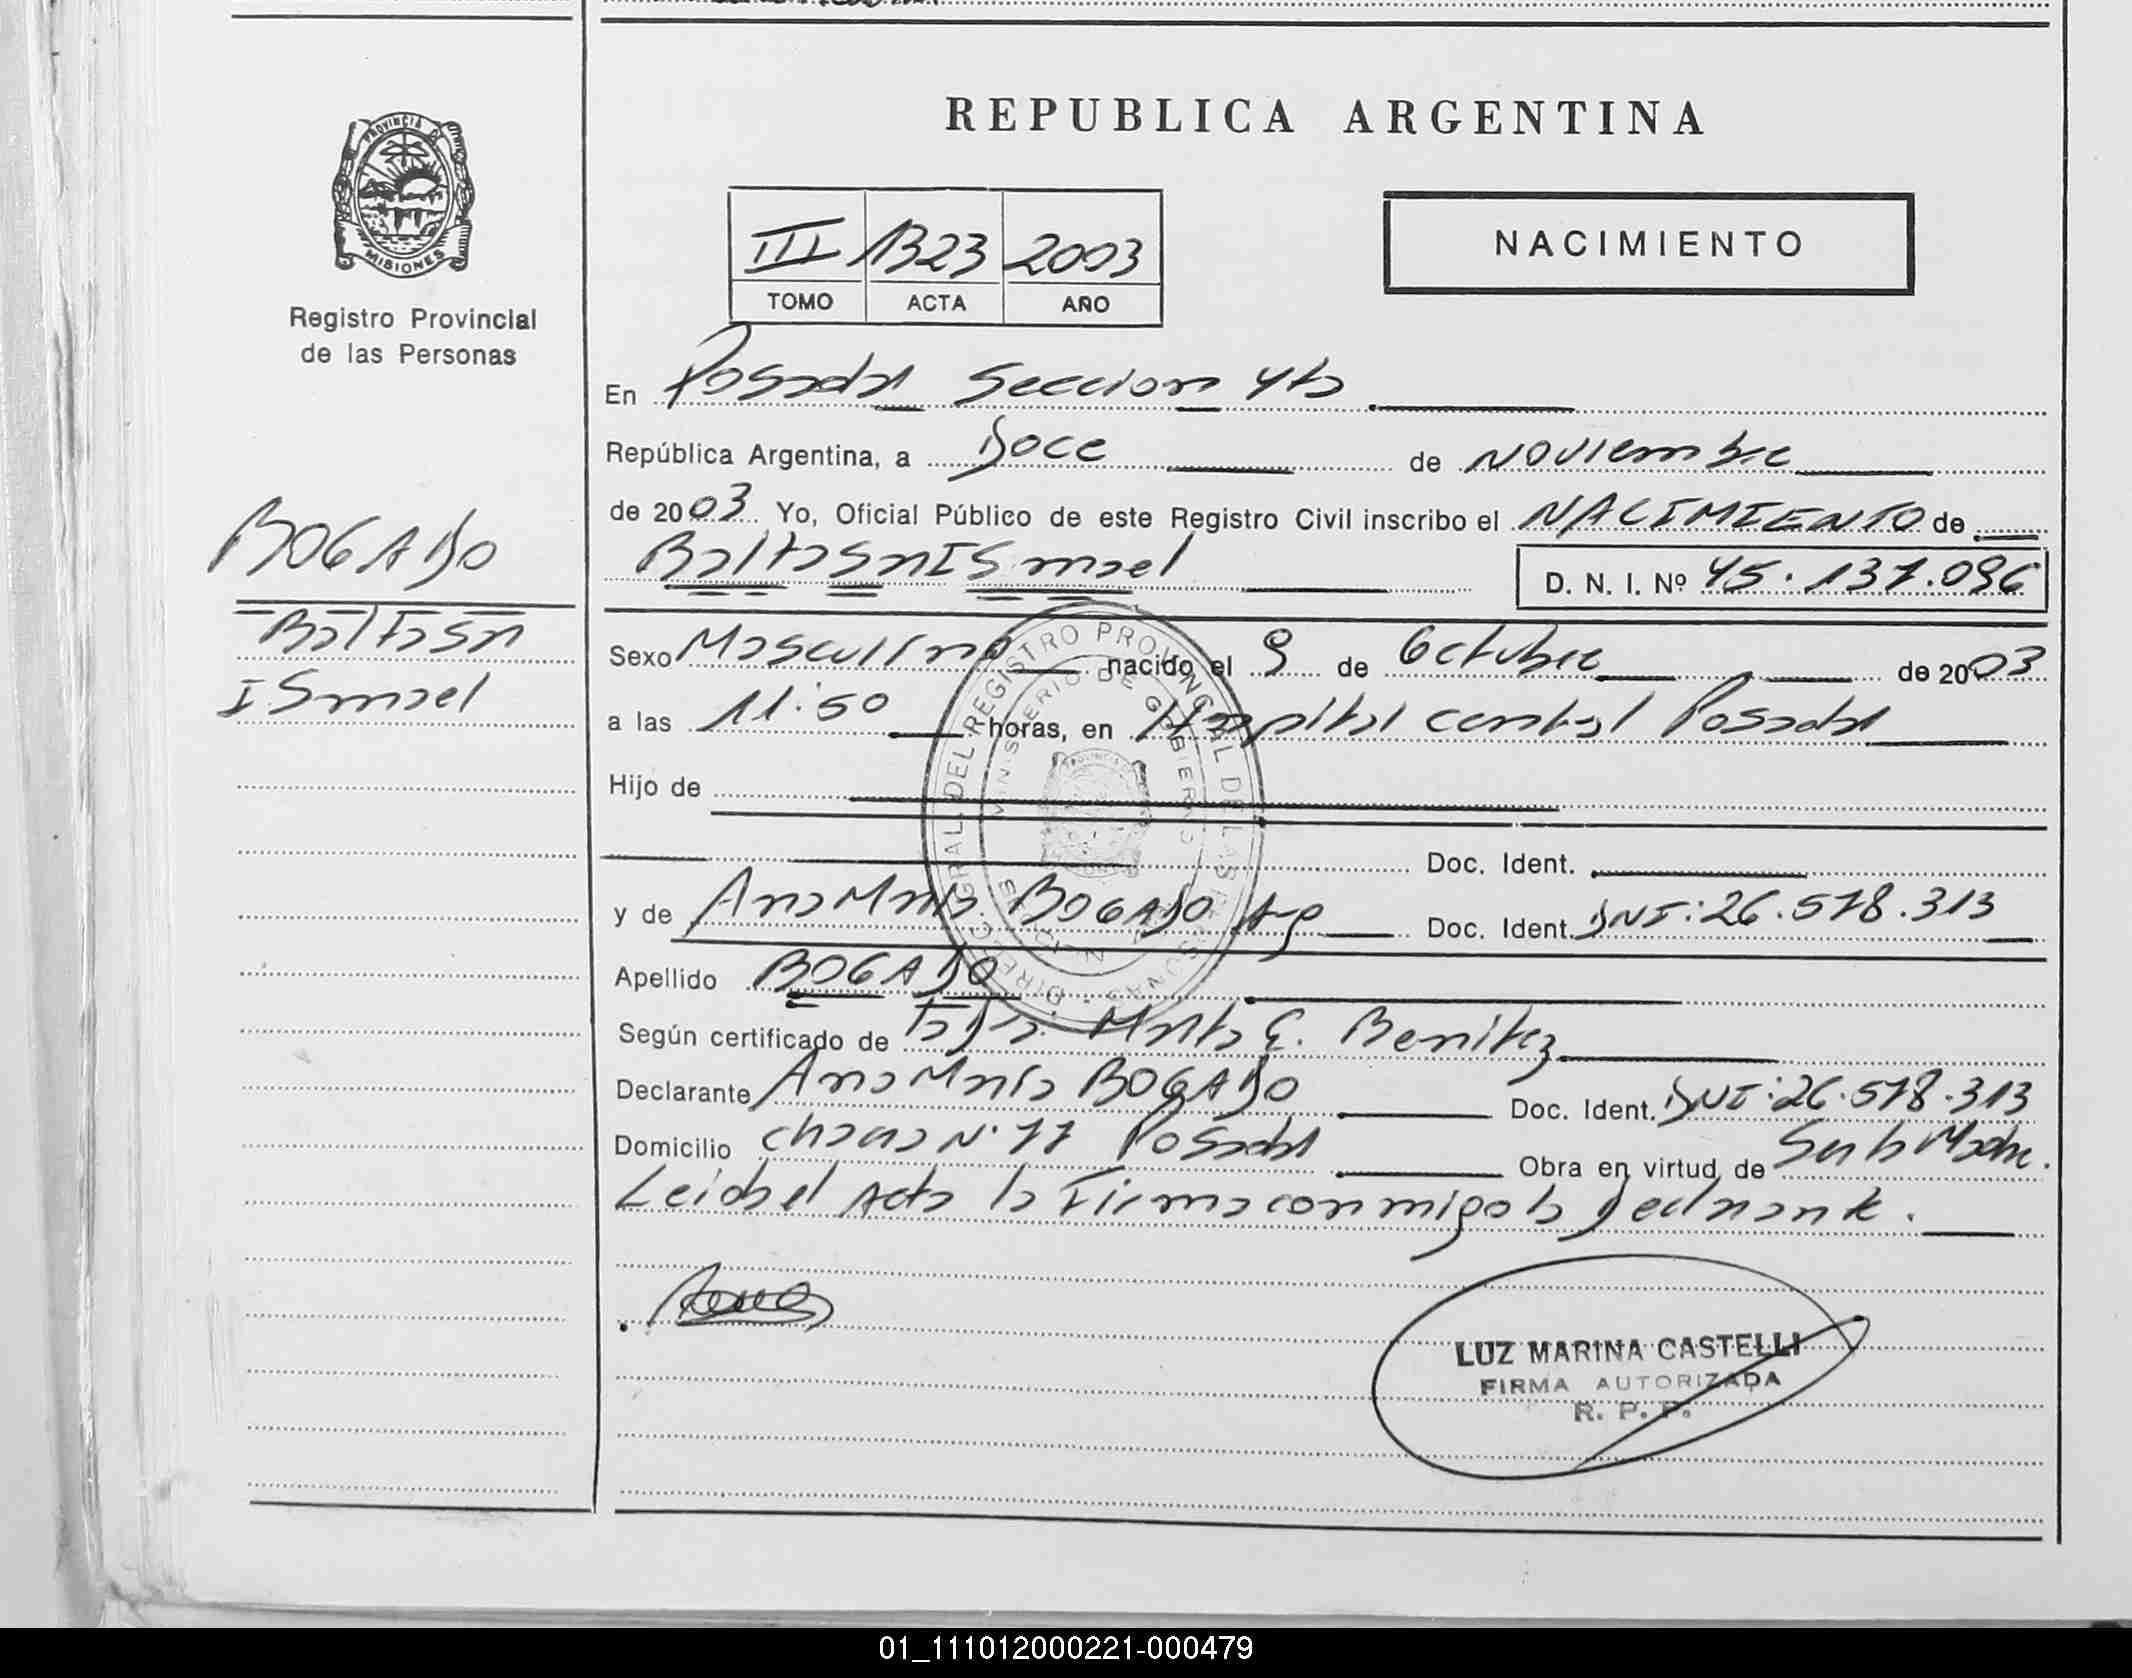 REPUBLICA ARGENTINA
PROVINCIA DE
MISIONES
Registro Provincial
de las Personas
III 1323 2003
TOMO ACTA AÑO
NACIMIENTO
En Posadas Seccion 4ta
República Argentina, a Doce de Noviembre
de 2003 Yo, Oficial Público de este Registro Civil inscribo el NACIMIENTO de
Baltasar Ismael D. N. I. Nº 45.137.096
BOGADO
Baltasar
Ismael
Sexo Masculino nacido el 9 de Octubre de 2003
a las 11:50 horas, en Hospital central Posadas
Hijo de
Doc. Ident.
y de Ana Maria BOGADO Arg Doc. Ident. DNI: 26.578.313
Apellido BOGADO
Según certificado de Marta E. Benitez
Declarante Ana Maria BOGADO Doc. Ident. DNI: 26.578.313
Domicilio chacra Nº 77 Posadas Obra en virtud de Ser la Madre.
Leida el Acta la Firma conmigo la declarante.
DIREC. GRAL. DEL REGISTRO PROVINCIAL DE LAS PERSONAS
MINISTERIO DE GOBIERNO
LUZ MARINA CASTELLI
FIRMA AUTORIZADA
R. P. P.
01_111012000221-000479